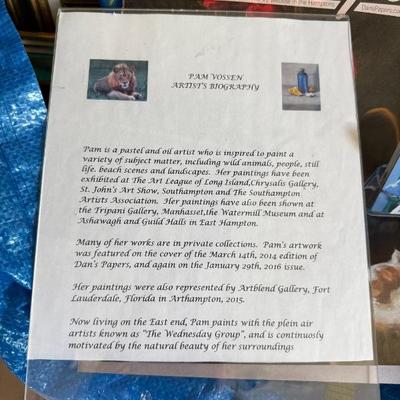 website in the Hamptons
DansPapers.com
PAM VOSSEN
ARTIST'S BIOGRAPHY
Pam is a pastel and oil artist who is inspired to paint a
variety of subject matter, including wild animals, people, still
life. beach scenes and landscapes. Her paintings have been
exhibited at The Art League of Long Island,Chrysalis Gallery,
St. John's Art Show, Southampton and The Southampton
Artists Association. Her paintings have also been shown at
the Tripani Gallery, Manhasset,the Watermill Museum and at
Ashawagh and Guild Halls in East Hampton.
Many of her works are in private collections. Pam's artwork
was featured on the cover of the March 14th, 2014 edition of
Dan's Papers, and again on the January 29th, 2016 issue.
Her paintings were also represented by Artblend Gallery, Fort
Lauderdale, Florida in Arthampton, 2015.
Now living on the East end, Pam paints with the plein air
artists known as "The Wednesday Group", and is continuosly
motivated by the natural beauty of her surroundings